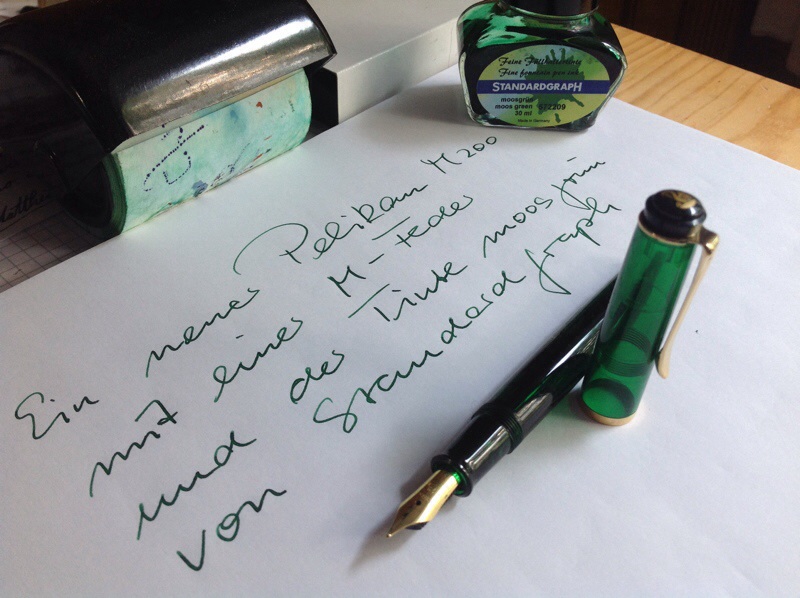 Feine Füllhaltertinte
Fine fountain pen ink
STANDARDGRAPH
moosgrün
moos green 072209
30 ml
Made in Germany
Ein neuer Pelikan M200
mit einer M-Feder
und der Tinte moosgrün
von Standardgraph